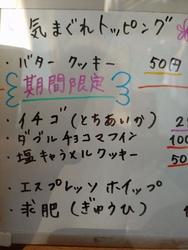 気まぐれトッピング
・バタークッキー 50円
期間限定
・イチゴ(とちあいか) 2
・ダブルチョコマフィン 100
・塩キャラメルクッキー 50
・エスプレッソホイップ
・求肥(ぎゅうひ)